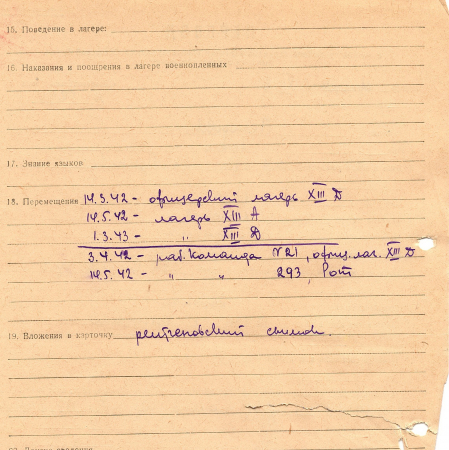 15. Поведение в лагере:
16. Наказания и поощрения в лагере военнопленных
17. Знание языков
18. Перемещения 14.3.42 - офицерский лагерь XIII D
14.5.42 - лагерь XIII А
1.3.43 - " XIII D
3.4.42 - раб. команда №21, офиц. лаг. XIII D
14.5.42 - " " 293 Рот
19. Вложения в карточку рентгеновский снимок.